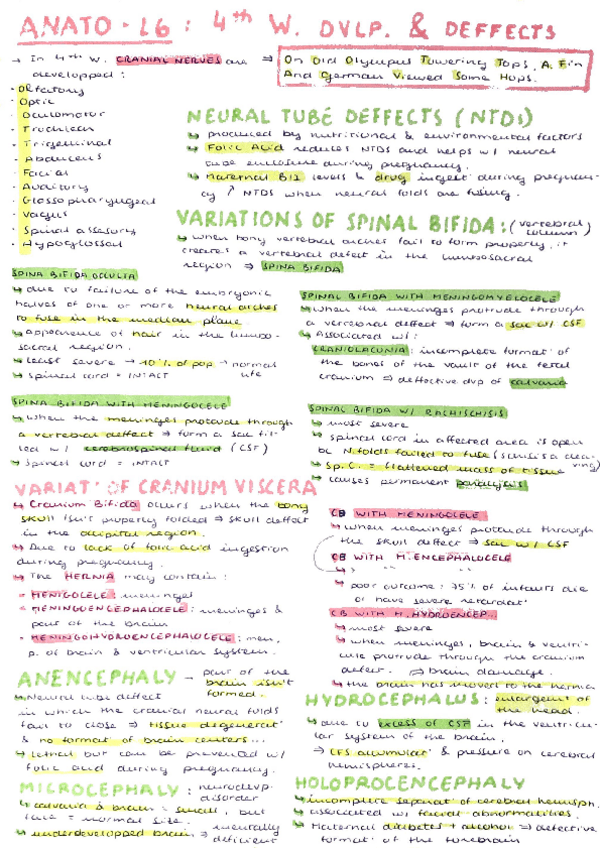 ANATO - L6 : 4th W. DVLP. & DEFFECTS
→ In 4th W. CRANIAL NERVES are developped :
⇒ On Old Olympus Towering Tops, A Fin And German Viewed Some Hops.
· Olfactory
· Optic
· Oculomotor
· Trochlear
· Trigeminal
· Abducens
· Facial
· Auditory
· Glossopharyngeal
· Vagus
· Spinal assesory
· Hypoglossal
NEURAL TUBE DEFFECTS (NTDs)
↳ produced by nutritional & environmental factors
↳ Folic Acid reduces NTDs and helps w/ neural
tube enclosure during pregnancy.
↳ Maternal B12 levels & drug ingest° during pregnan-
cy ↗ NTDs when neural folds are fusing.
VARIATIONS OF SPINAL BIFIDA: (vertebral column)
↳ when bony vertebral arches fail to form properly, it
creates a vertebral defect in the lumbosacral
region ⇒ SPINA BIFIDA
SPINA BIFIDA OCCULTA
↳ due to failure of the embryonic
halves of one or more neural arches
to fuse in the median plane
↳ appearance of hair in the lumbo-
sacral region.
↳ least severe → 10% of pop → normal life
↳ spinal cord = INTACT
SPINA BIFIDA WITH MENINGOCELE
↳ when the meninges protrude through
a vertebral deffect ⇒ form a sac fil-
led w/ cerebrospinal fluid (CSF)
↳ spinal cord = INTACT
SPINAL BIFIDA WITH MENINGOMYELOCELE
↳ when the meninges protrude through
a vertebral deffect ⇒ form a sac w/ CSF
↳ Associated w/:
CRANIOLACUNIA: incomplete format° of
the bones of the vault of the fetal
cranium ⇒ deffective dvp of calvaria
SPINAL BIFIDA W/ RACHISCHISIS
↳ most severe
↳ spinal cord in affected area is open
bc N.folds failed to fuse
↳ Sp. C. = flattened mass of tissue
↳ causes permanent paralysis
VARIAT° OF CRANIUM VISCERA
↳ Cranium Bifida occurs when the bony
skull isn't properly folded ⇒ skull deffect
in the occipital region.
↳ Due to lack of folic acid ingestion
during pregnancy.
↳ The HERNIA may contain :
• MENIGOCELE : meninges
• MENINGOENCEPHALOCELE : meninges &
part of the brain
• MENINGOHYDROENCEPHALOCELE : men,
p. of brain & ventricular system.
CB WITH MENINGOCELE
↳ when meninges protrude through
the skull deffect ⇒ sac w/ CSF
CB WITH M.ENCEPHALOCELE
↳ " " "
↳ poor outcome: 75% of infants die
or have severe retardat°
CB WITH M.HYDROENCEP...
↳ most severe
↳ when meninges, brain & ventri-
cule protrude through the cranium
defect. ⇒ brain damage.
↳ the brain has moved to the hernia.
ANENCEPHALY - part of the brain isn't formed.
↳ Neural tube deffect
in which the cranial neural folds
fail to close ⇒ tissue degenerat°
& no format° of brain centers...
↳ Lethal but can be prevented w/
folic acid during pregnancy.
HYDROCEPHALUS : enlargemt of the head.
↳ due to excess of CSF in the ventricu-
lar system of the brain.
⇒ CFS accumulat° & pressure on cerebral
hemispheres.
MICROCEPHALY : neurodevp. disorder
↳ calvaria & brain : small, but
face = normal size.
↳ underdevelopped brain ⇒ mentally deficient
HOLOPROCENCEPHALY
↳ incomplete separat° of cerebral hemisph.
↳ associated w/ facial abnormalities.
↳ Maternal diabetes + alcohol ⇒ defective
format° of the forebrain